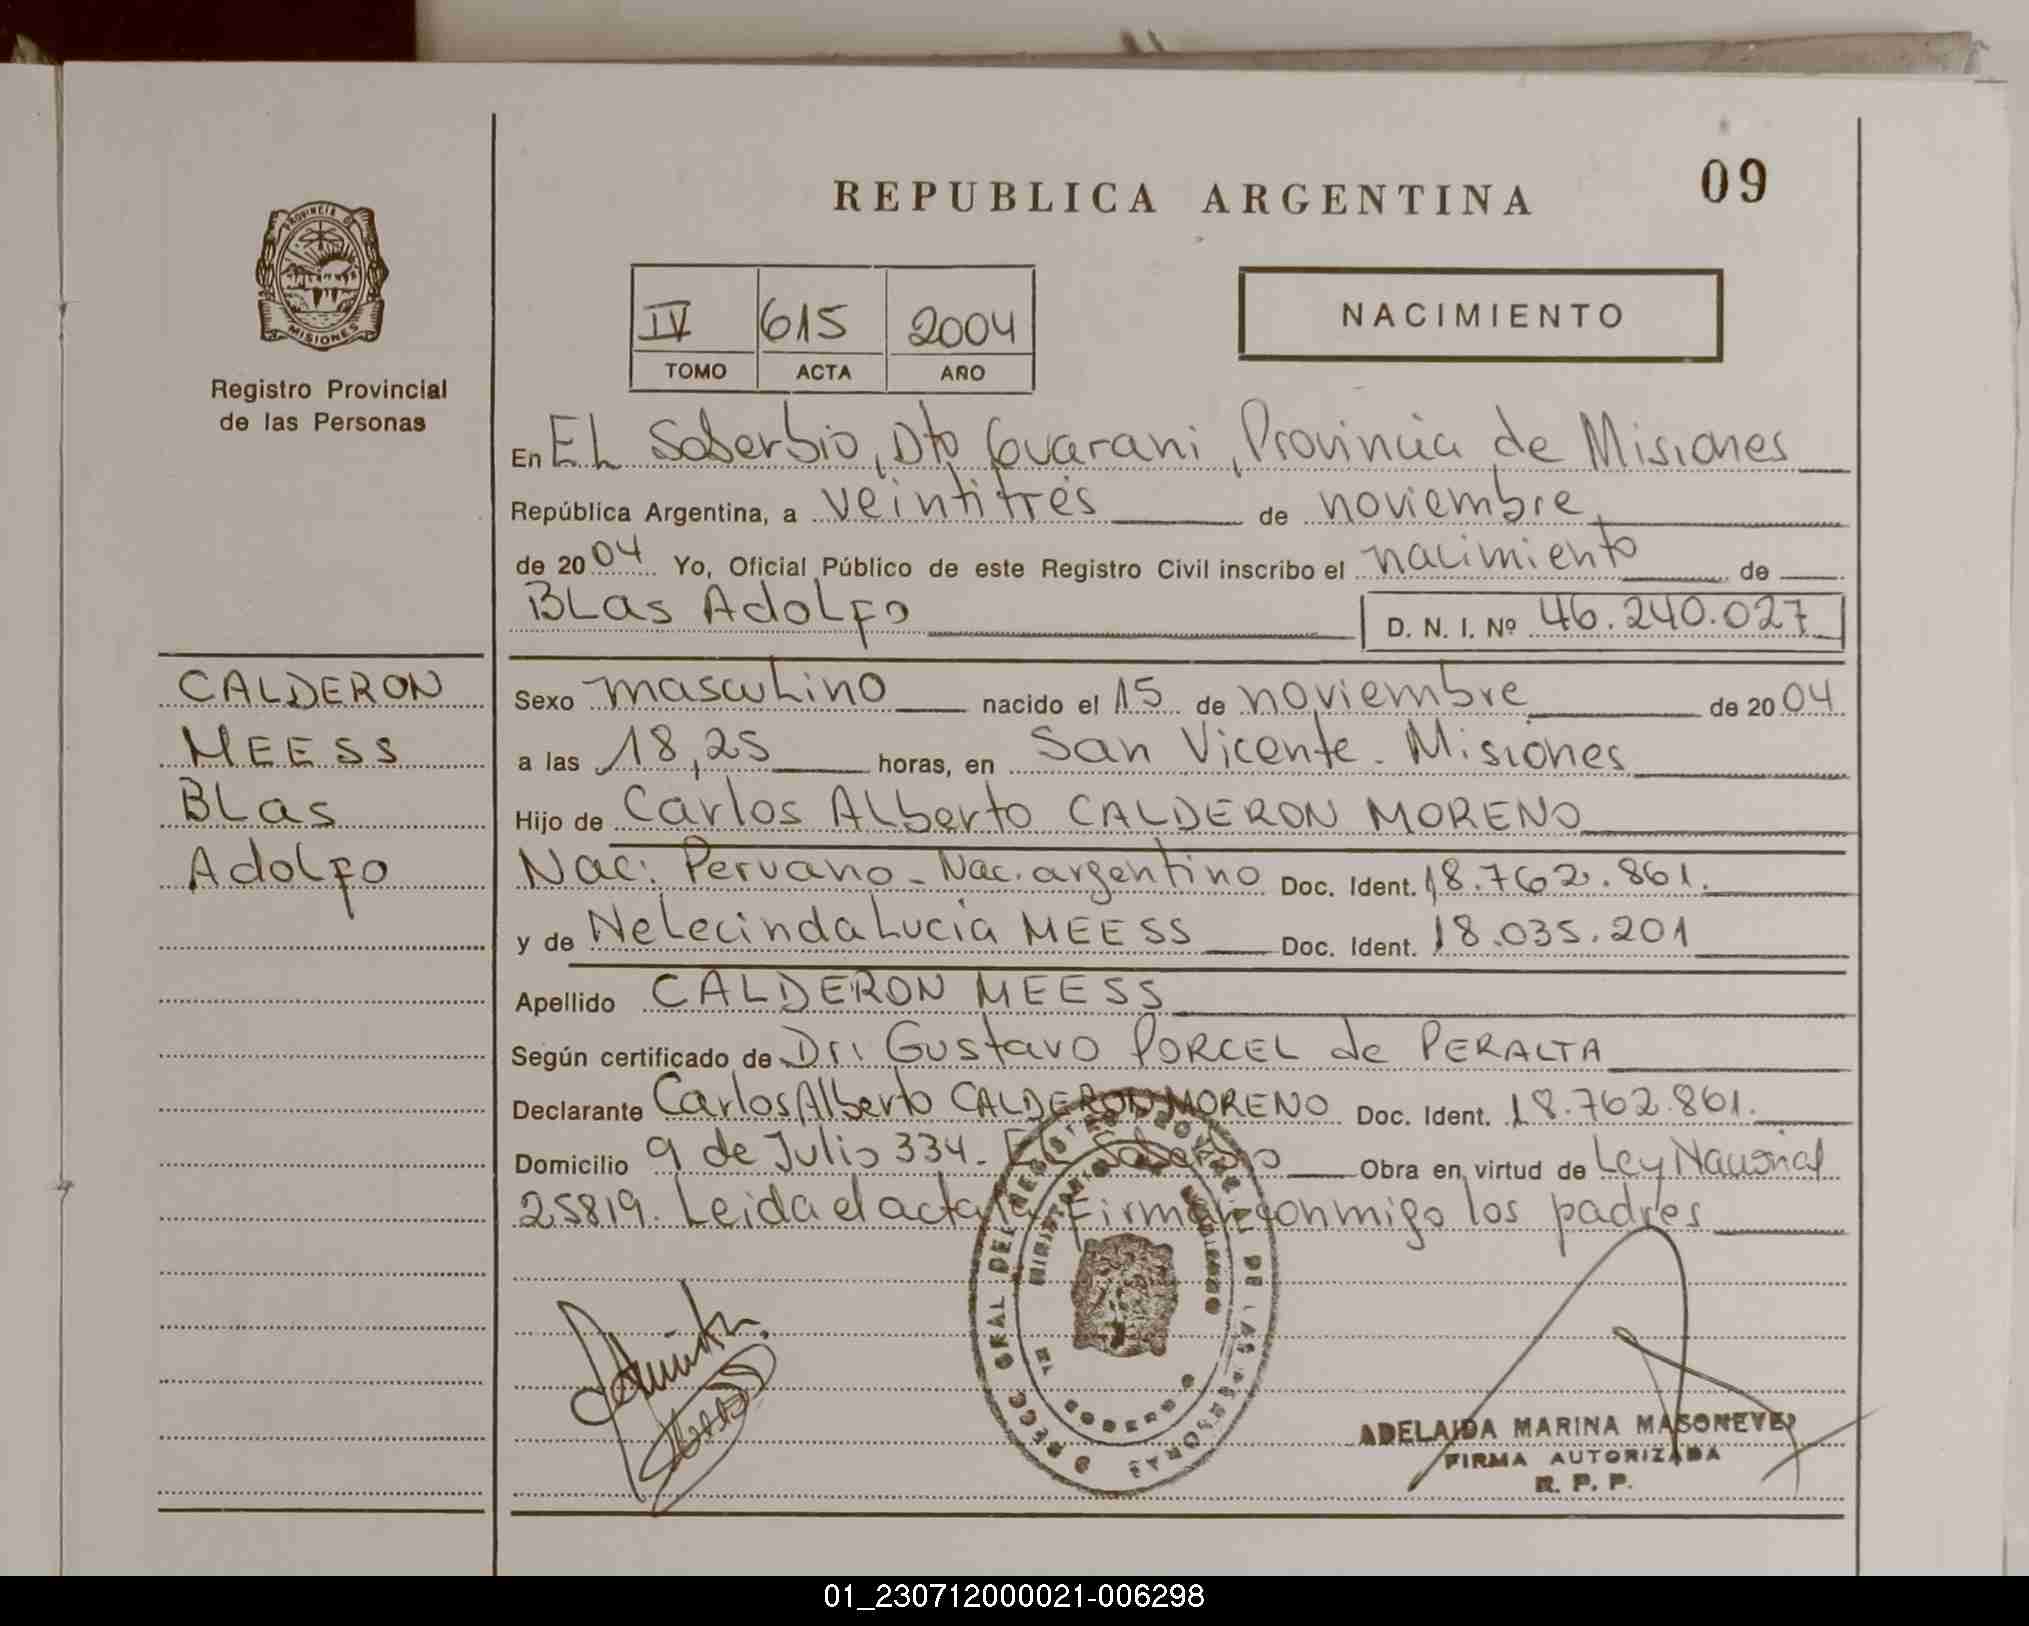 REPUBLICA ARGENTINA
09
PROVINCIA DE
MISIONES
Registro Provincial
de las Personas
IV 615 2004
TOMO ACTA AÑO
NACIMIENTO
En EL Soberbio, Dto Guarani, Provincia de Misiones
República Argentina, a veintitrés de noviembre,
de 2004 Yo, Oficial Público de este Registro Civil inscribo el nacimiento de
BLas AdoLfo D. N. I. Nº 46.240.027
CALDERON
MEESS
BLas
AdoLfo
Sexo mascuLino nacido el 15 de noviembre de 2004
a las 18,25 horas, en San Vicente - Misiones
Hijo de Carlos ALberto CALDERON MORENO
Nac: Peruano - Nac. argentino Doc. Ident. 18.762.861.
y de NeLecinda Lucia MEESS Doc. Ident. 18.035.201
Apellido CALDERON MEESS
Según certificado de Dr: Gustavo PORCEL de PERALTA
Declarante Carlos ALberto CALDERON MORENO Doc. Ident. 18.762.861.
Domicilio 9 de Julio 334 - EL Soberbio Obra en virtud de Ley Nacional
25819. Leida el acta la Firman conmigo los padres
GRAL DEL DE LAS PERSONAS
MINISTERIO
ADELAIDA MARINA MASONEVE
FIRMA AUTORIZADA
R. P. P.
01_230712000021-006298